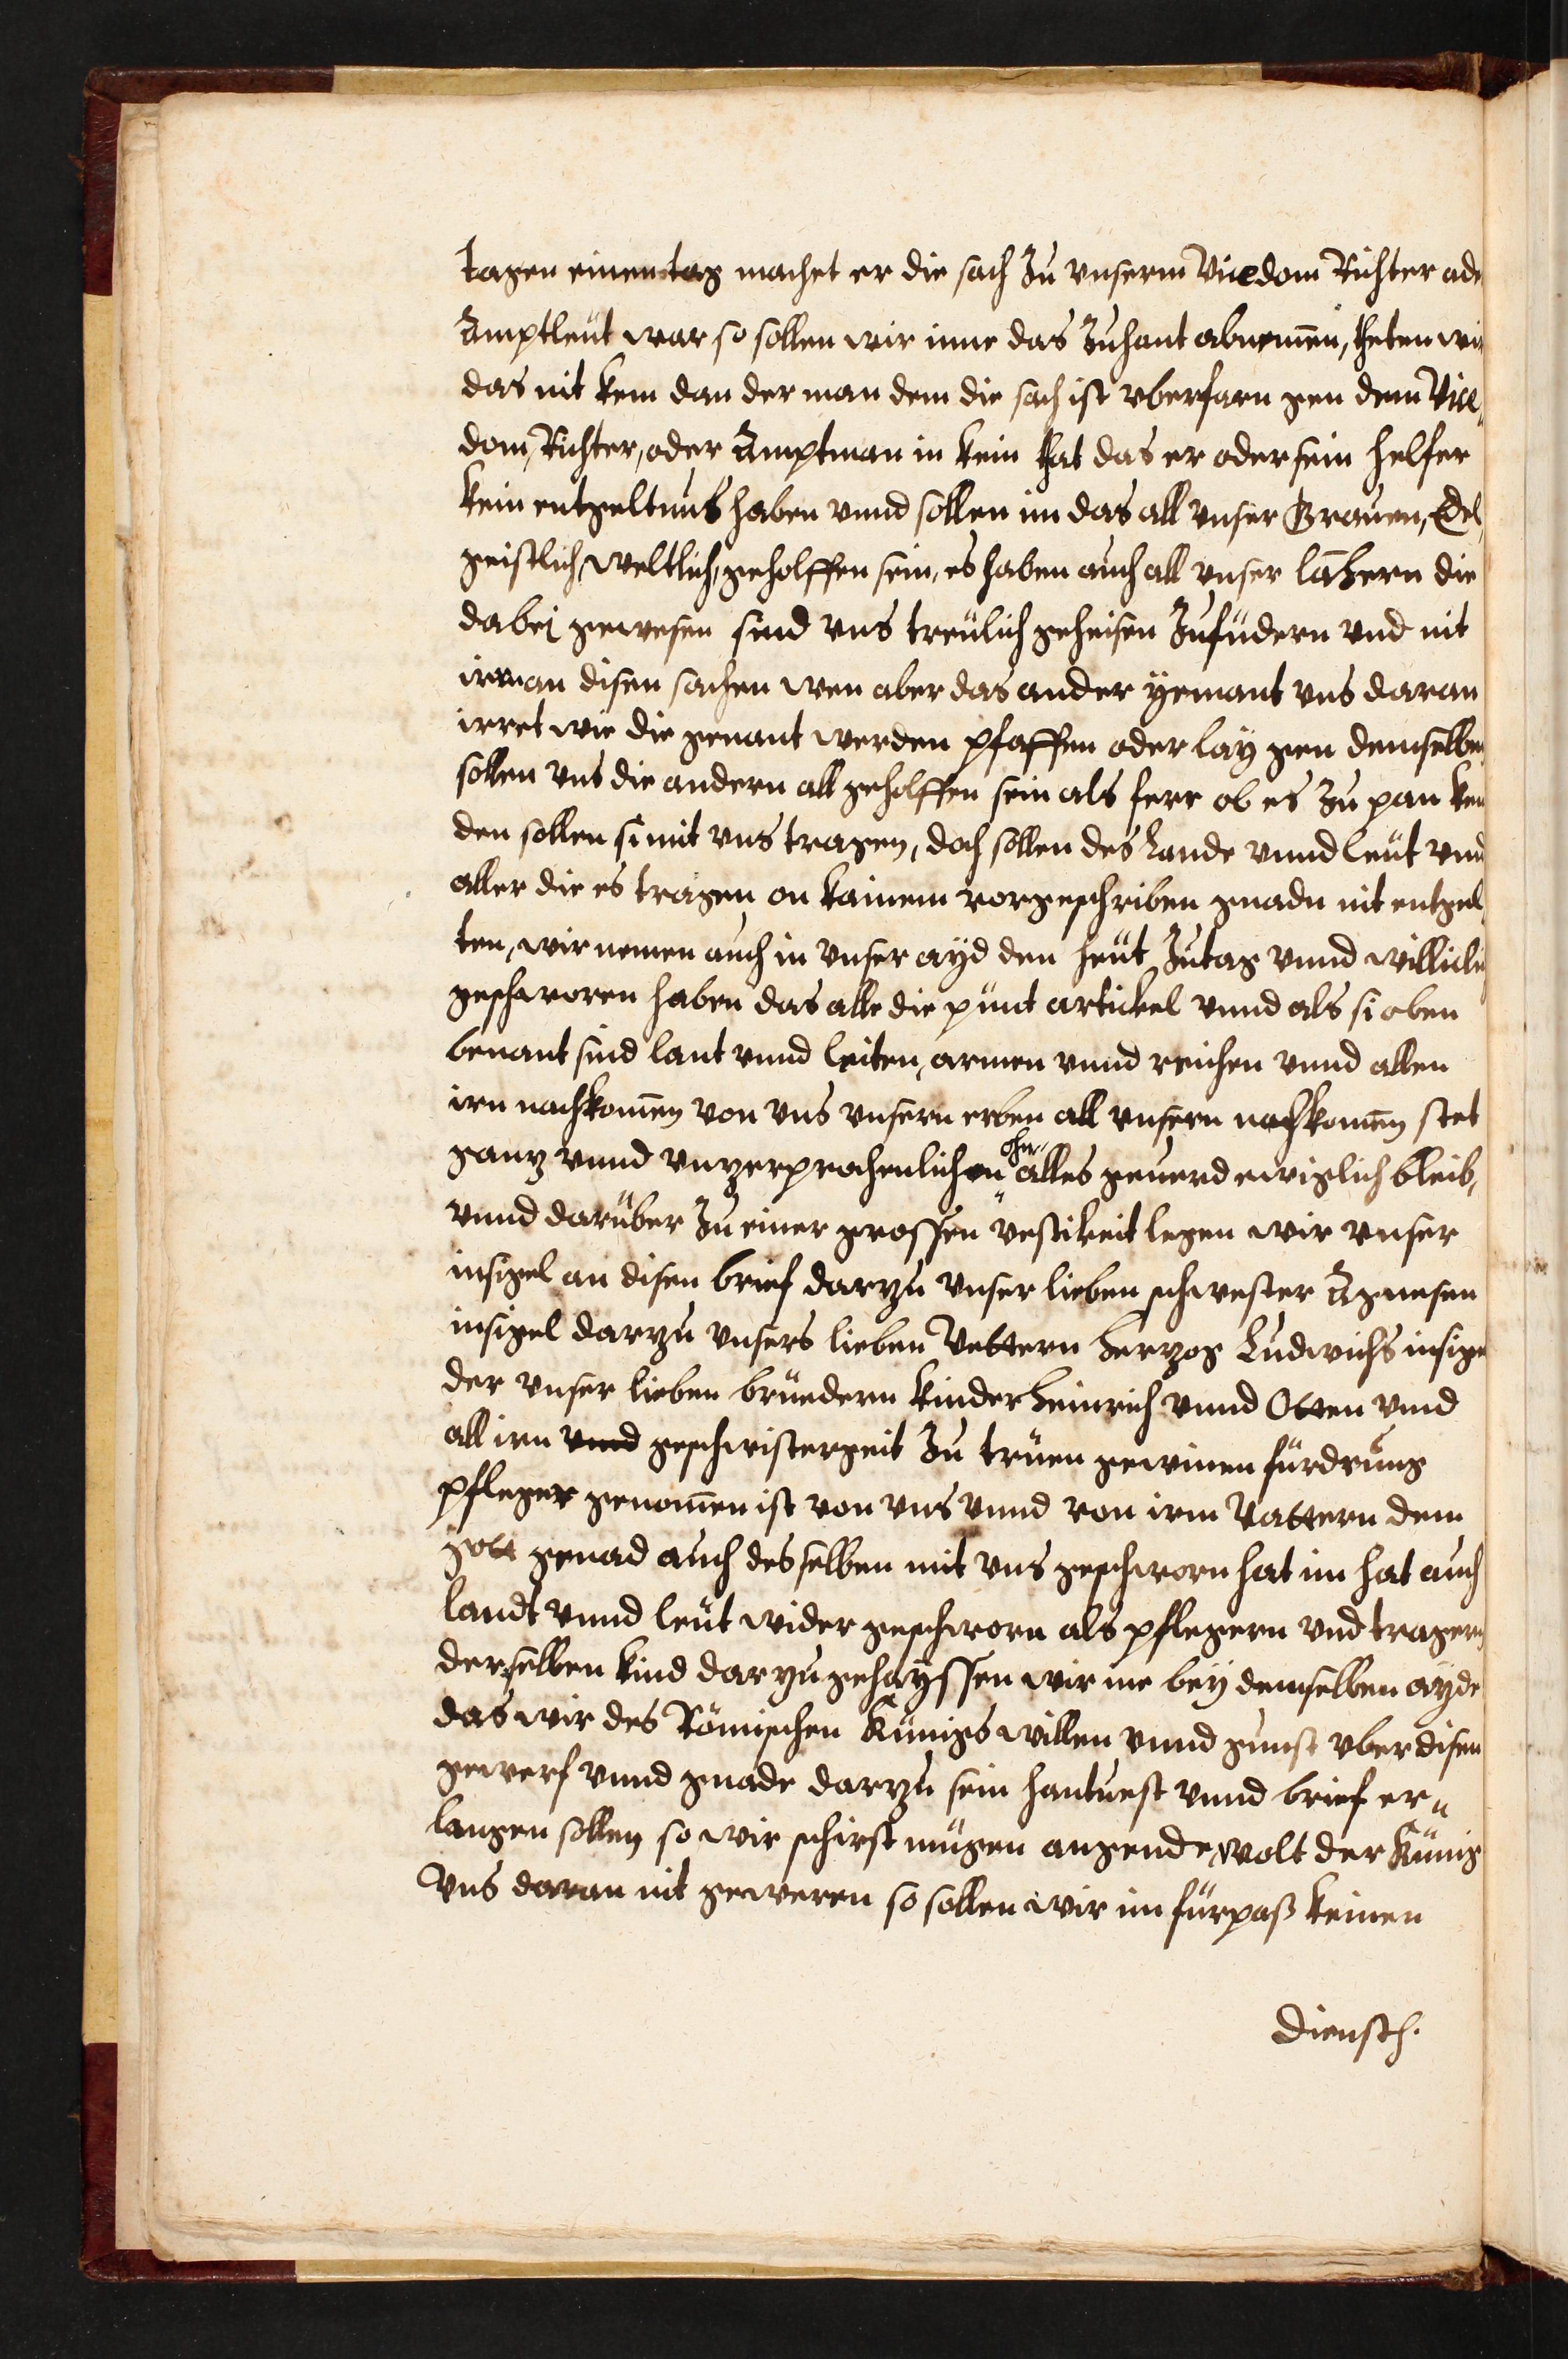 tagen einen tag machet er die sach Zu vnserm Vicedom Richter ode
Amptleut war so sollen wir inne das Zuhant abnemen̄, theten wi
das nit kem dan der man dem die sach ist vberfarn gen dem Vice„
dom, Richter, oder Amptman in kein that das er oder sein helfer
kein entgeltnus haben vnnd sollen im das all vnser Grauen, Edel
geistlich, weltlich, geholffen sein, es haben auch all vnser lā
dabei gewesen sind vns treülich geheisen Zufüdern vnd nit
irrn an disen sachen wen aber das ander yemant vns daran
irret wie die genant werden pfaffen oder lay gen demselben
sollen vns die andern all geholffen sein als ferr ob es Zu pan kem
den sollen si mit vns tragen, doch sollen des Lande vnnd leut vnd
aller die es tragen on kainem vorgeschriben gnadn nit entgel
ten, wir nemen auch in vnser ayd den heut Zutag vnnd willicli
geschworen haben das alle die punt artickel vnnd als si oben
benant sind lant vnnd leiten, armen vnnd reichen vnnd allen
irn nachkomen̄ von vns vnsern erben all vnsern nachkomen̄ stet
ganz vnnd vnzerprochenlichen ohn alles geuerd ewiglich bleib,
vnnd darüber Zu einer grossen vestikeit legen wir vnser
insigel an disen brief darzu vnser lieben schwester Agnesen
insigel darzu vnsers lieben Vettern Herzog Ludwichs insige
der vnser lieben brüedern kinder Heinrich vnnd Otten vnnd
all irn vnnd geschwistergeit Zu trüen gewinen fürdrung
pfleger genomen̄ ist von vns vnnd von irm Vattern dem
gott genad auch desselben mit vns geschworn hat im hat auch
landt vnnd leut wider geschworn als pflegern vnd tragern
derselben kind darzu gehayssen wir ine bey demselben ayde
das wir des Römischen Künigs willen vnnd gunst vber disen
gewerf vnnd gnade darzu sein hantuest vnnd brief er„
langen sollen so wir schirst mügen angende, wolt der Künig
Vns daran nit geweren so sollen wir im fürpaß keinen
Diensth.